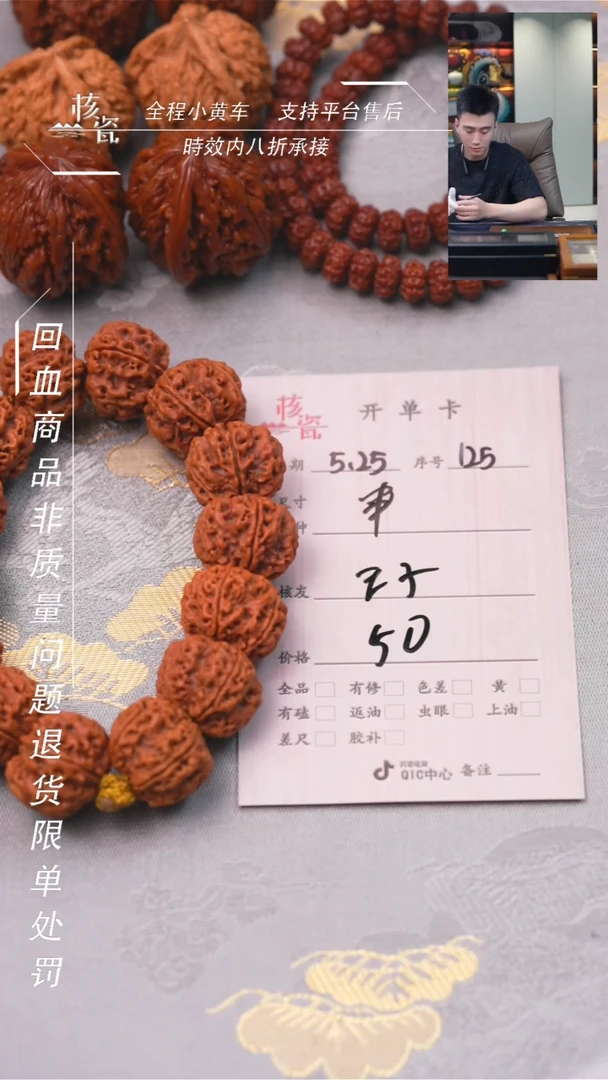 核瓷
全程小黄车 支持平台售后
時效内八折承接
回血商品非质量问题退货限单处罚
核瓷
开单卡
期 5.25 序号 125
尺寸
种
核友
价格 50
全品 有修 色差 黄
有磕 返油 虫眼 上油
差尺 胶补
抖音电商
QIC中心 备注